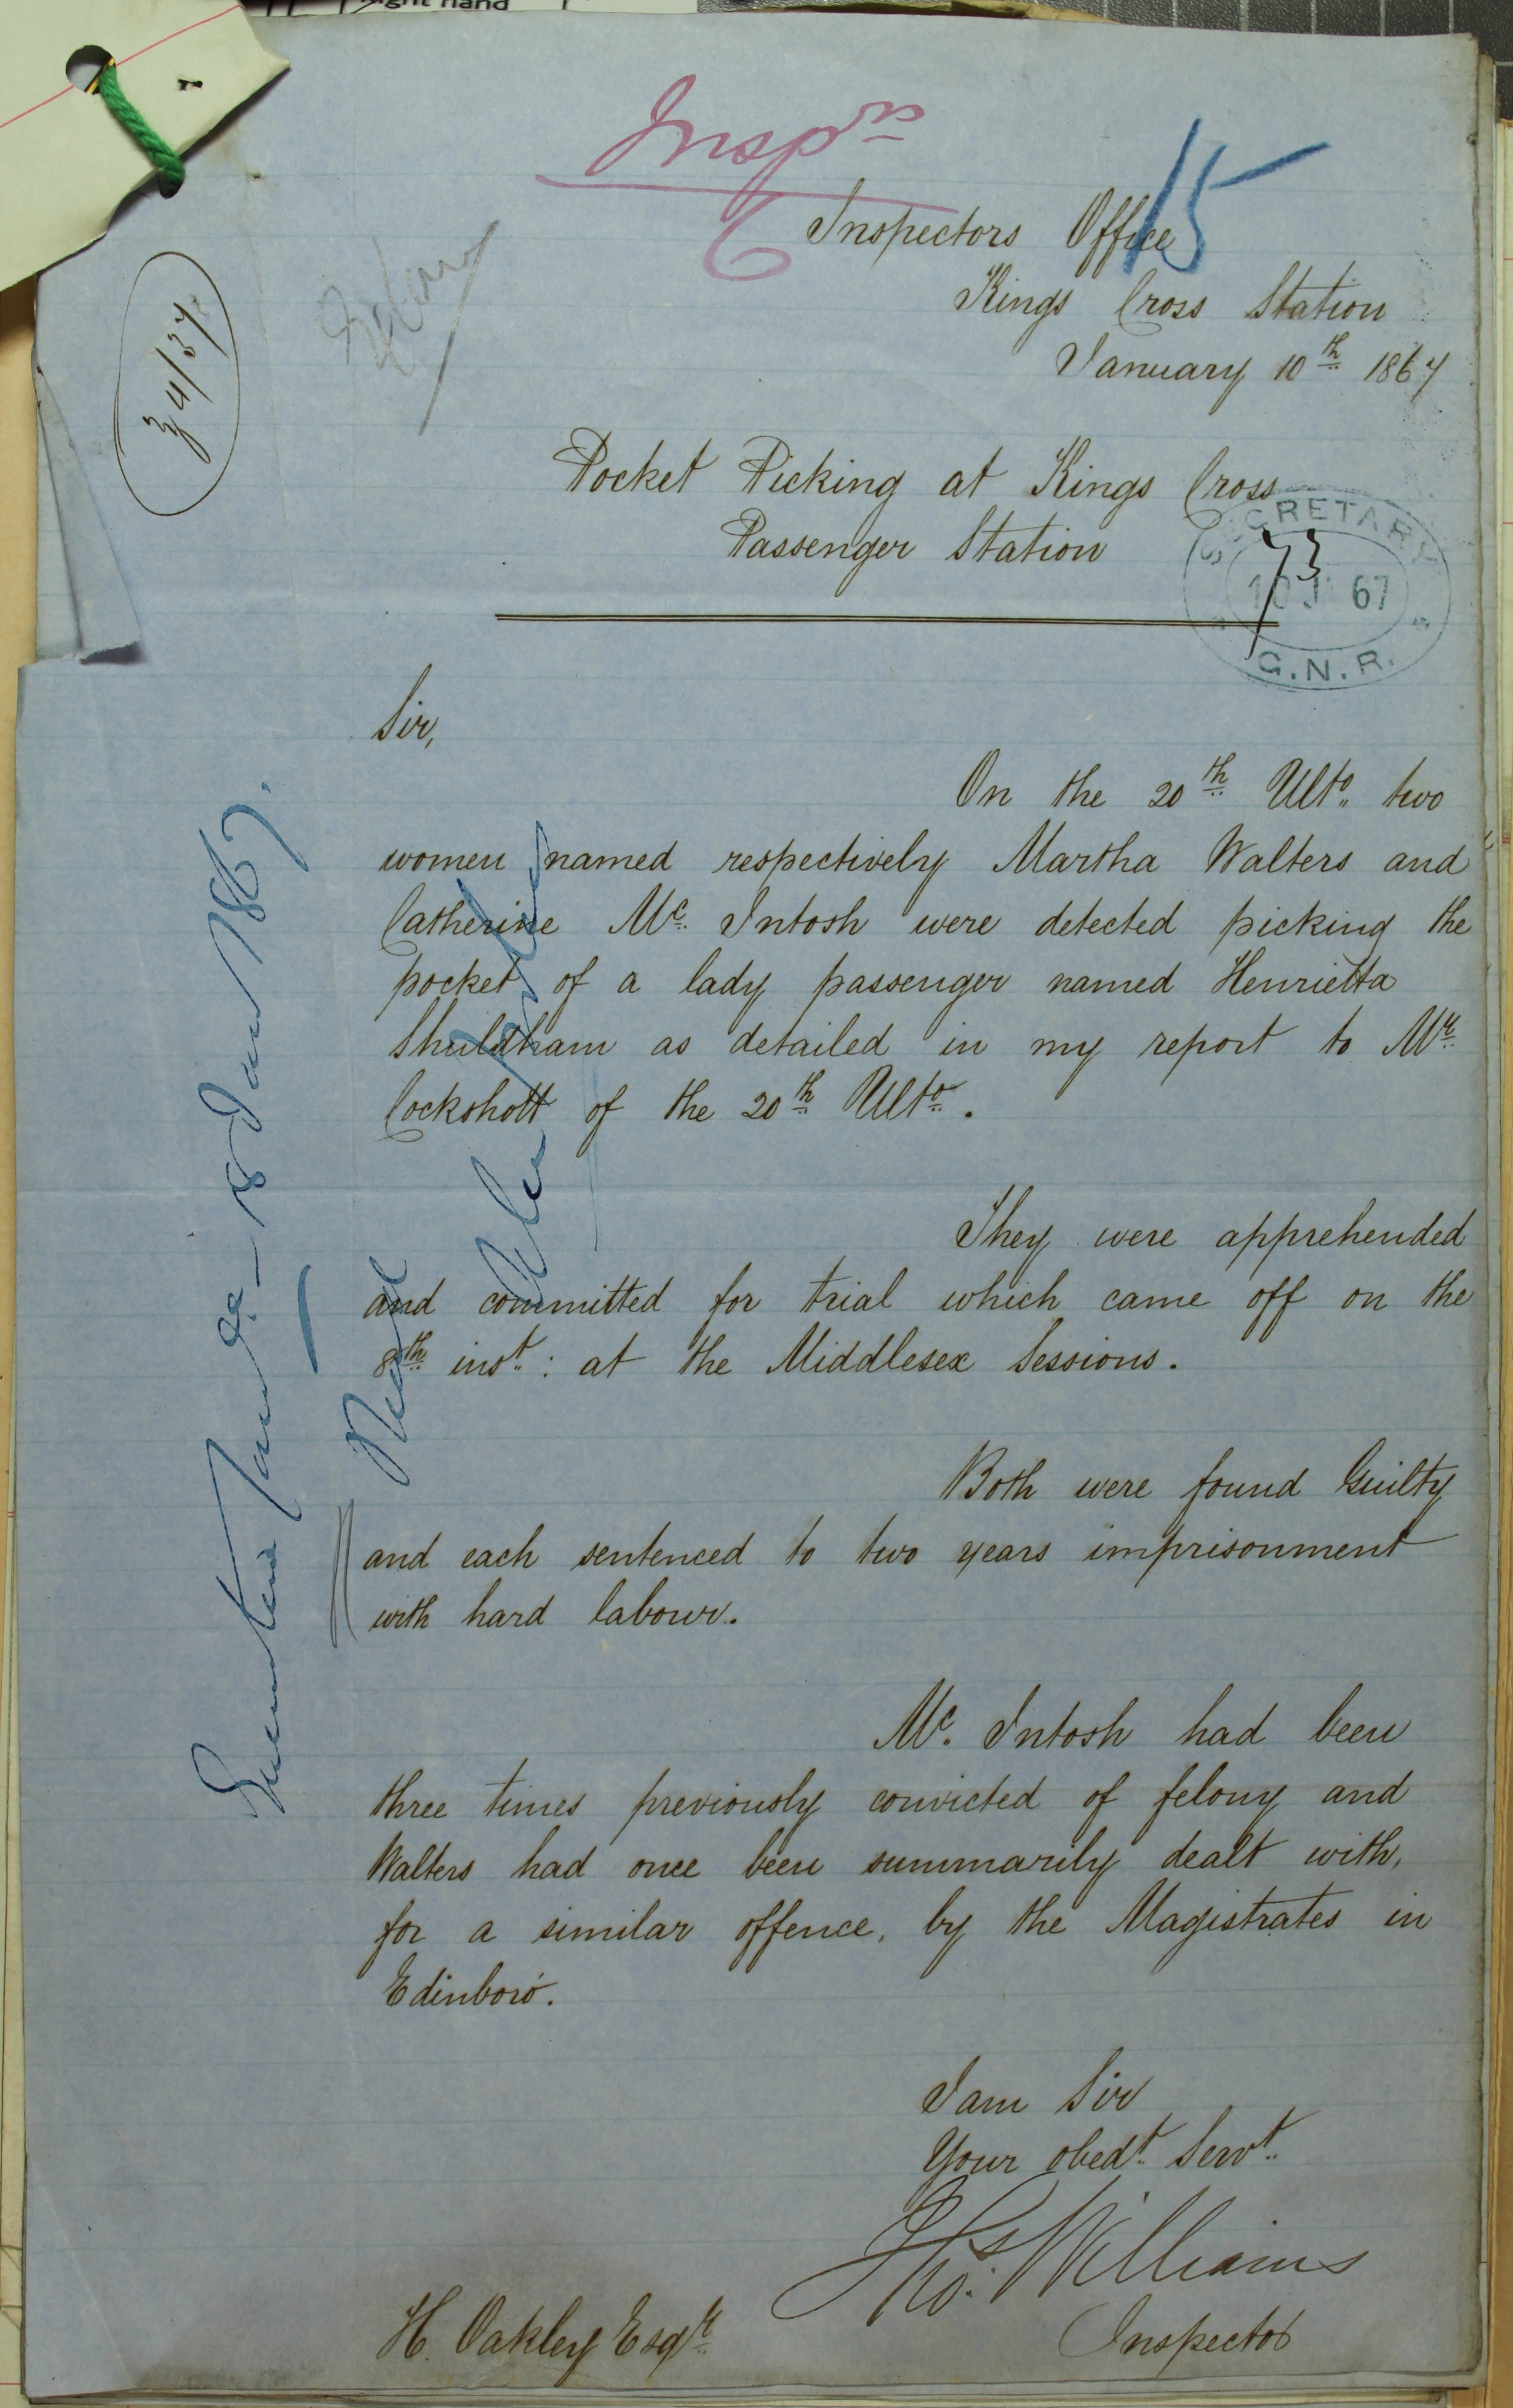 right hand
Insprs
15
Inspectors Office
Kings Cross Station
January 10th 1867
34/37
Pocket Picking at Kings Cross
Passenger Station
SECRETARY
73
10 J 67
G.N.R.
Sir,
On the 20th Ulto. two
women named respectively Martha Walters and
Catherine Mc. Intosh were detected picking the
pocket of a lady passenger named Henrietta
Shuldham as detailed in my report to Mr.
Cockshott of the 20th Ulto.
They were apprehended
and committed for trial which came off on the
8th inst.: at the Middlesex Sessions.
Both were found Guilty
and each sentenced to two years imprisonment
with hard labour.
Mc. Intosh had been
three times previously convicted of felony and
Walters had once been summarily dealt with,
for a similar offence, by the Magistrates in
Edinboro'.
I am Sir
Your obedt. Servt.
Thos. Williams
Inspector
H. Oakley Esqr.
18 Jan 1867.